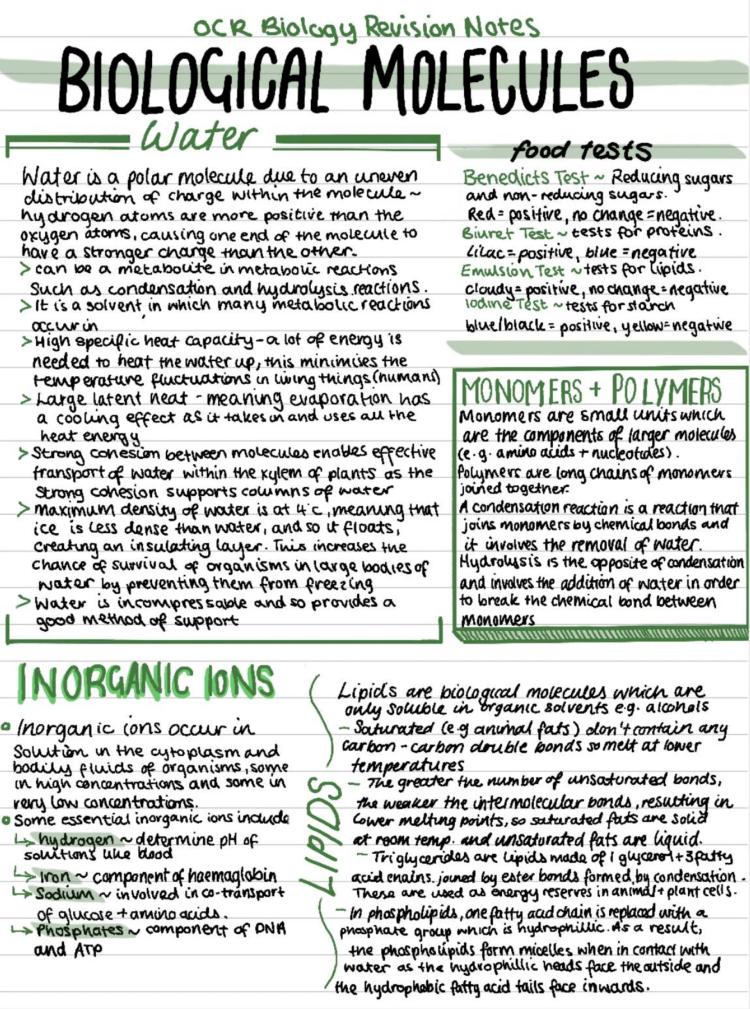 OCR Biology Revision Notes
BIOLOGICAL MOLECULES
Water
Water is a polar molecule due to an uneven
distribution of charge within the molecule ~
hydrogen atoms are more positive than the
oxygen atoms, causing one end of the molecule to
have a stronger charge than the other.
> can be a metabolite in metabolic reactions
Such as condensation and hydrolysis reactions.
> It is a solvent in which many metabolic reactions
occur in
> High specific heat capacity - a lot of energy is
needed to heat the water up, this minimises the
temperature fluctuations in living things (humans)
> Large latent heat - meaning evaporation has
a cooling effect as it takes in and uses all the
heat energy
> Strong cohesion between molecules enables effective
transport of water within the xylem of plants as the
strong cohesion supports columns of water
> maximum density of water is at 4°C, meaning that
ice is less dense than water, and so it floats,
creating an insulating layer. This increases the
chance of survival of organisms in large bodies of
water by preventing them from freezing
> Water is incompressable and so provides a
good method of support
food tests
Benedicts Test ~ Reducing sugars
and non-reducing sugars.
Red = positive, no change = negative.
Biuret Test ~ tests for proteins.
Lilac = positive, blue = negative
Emulsion Test ~ tests for lipids.
cloudy = positive, no change = negative
Iodine Test ~ tests for starch
blue/black = positive, yellow = negative
MONOMERS + POLYMERS
Monomers are small units which
are the components of larger molecules
(e.g. amino acids + nucleotides).
Polymers are long chains of monomers
joined together.
A condensation reaction is a reaction that
joins monomers by chemical bonds and
it involves the removal of water.
Hydrolysis is the opposite of condensation
and involves the addition of water in order
to break the chemical bond between
monomers
INORGANIC IONS
Inorganic ions occur in
Solution in the cytoplasm and
bodily fluids of organisms, some
in high concentrations and some in
very low concentrations.
Some essential inorganic ions include
↳ hydrogen ~ determine pH of
solutions like blood
↳ Iron ~ component of haemaglobin
↳ Sodium ~ involved in co-transport
of glucose + amino acids.
↳ Phosphates ~ component of DNA
and ATP
LIPIDS
Lipids are biological molecules which are
only soluble in organic solvents e.g. alcohols
- Saturated (e.g animal fats) don't contain any
carbon-carbon double bonds so melt at lower
temperatures
- The greater the number of unsaturated bonds,
the weaker the intermolecular bonds, resulting in
lower melting points, so saturated fats are solid
at room temp. and unsaturated fats are liquid.
- Triglycerides are lipids made of 1 glycerol + 3 fatty
acid chains. joined by ester bonds formed by condensation.
These are used as energy reserves in animal + plant cells.
- In phospholipids, one fatty acid chain is replaced with a
phosphate group which is hydrophillic. As a result,
the phospholipids form micelles when in contact with
water as the hydrophillic heads face the outside and
the hydrophobic fatty acid tails face inwards.